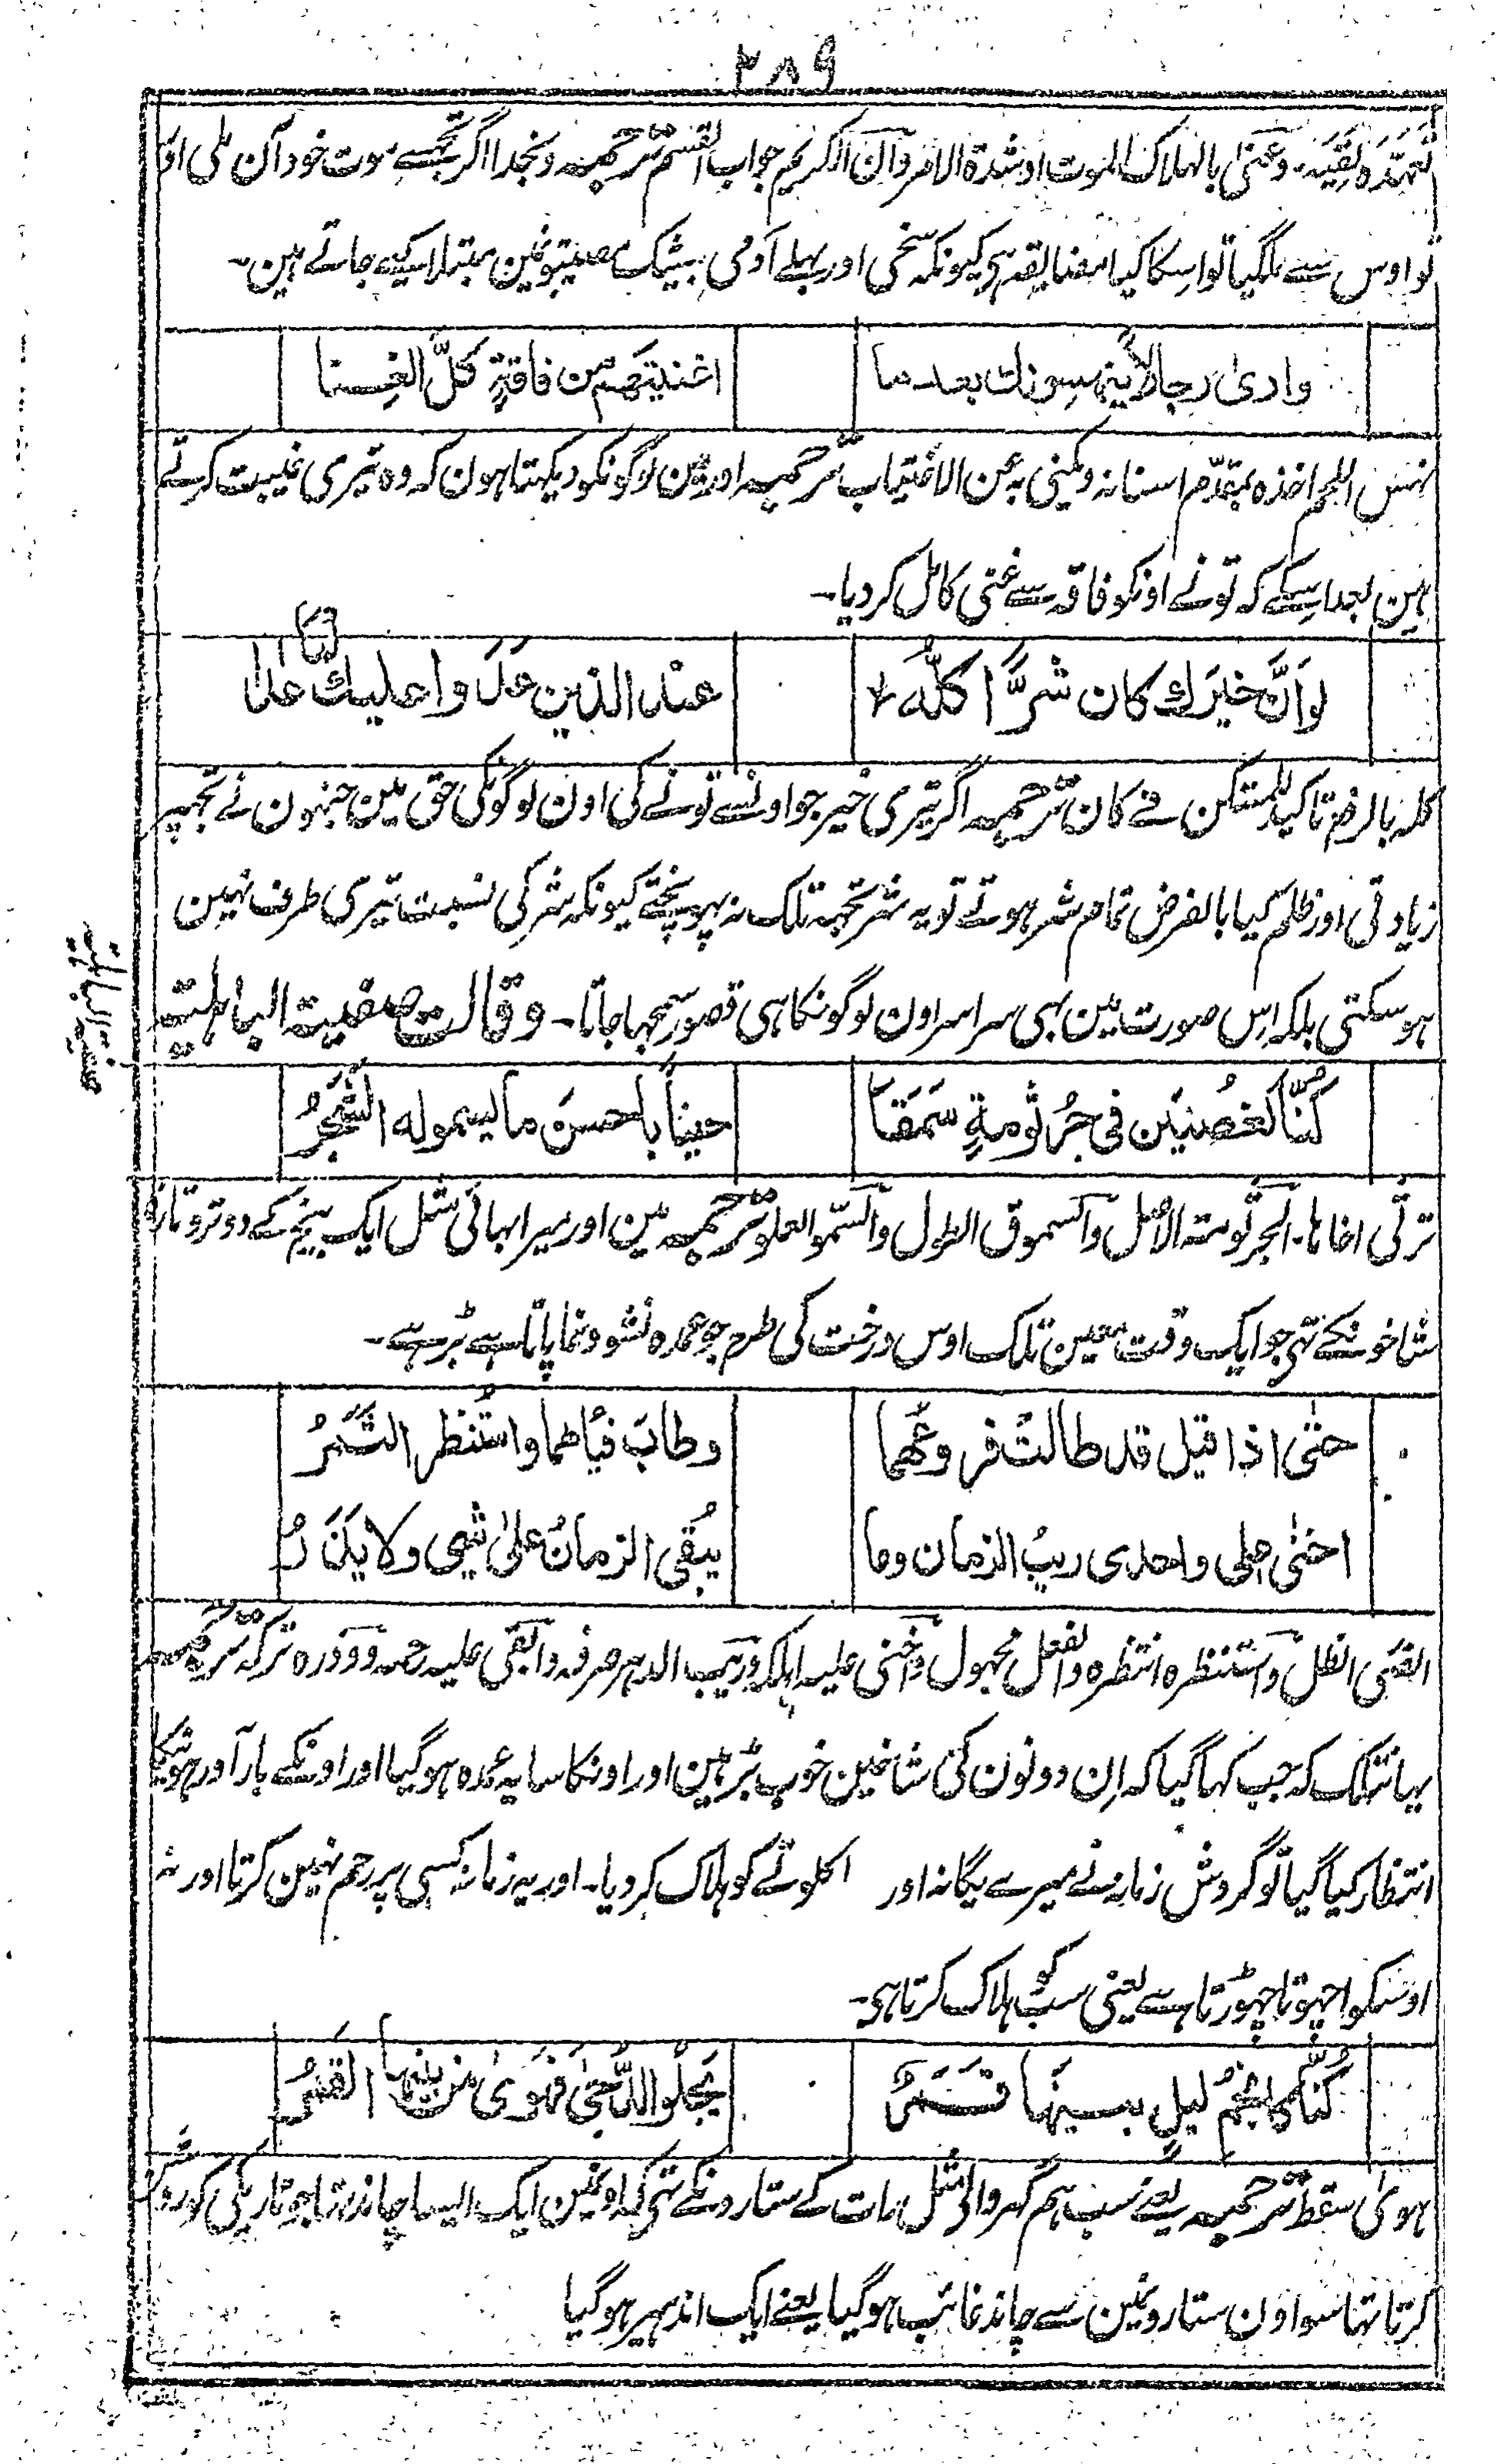 ۳۸۹
تعمّدہ لقیہ۔ وعنیٰ بالہلاک الموت او شدۃ الامر وان الکریم جواب القسم ترجمہ وبخدا اگر تجہسے موت خود آن ملی اور
تو اوس سے ملگیا تو اسکا کیا مضایقہ ہی کیونکہ سخی اور بہلے آدمی بیشک مصیبتونمین مبتلا کیے جاتے ہین۔
واری رجالا ینہسونک بعد ما
اغنیتھم من فاقۃٍ کلَّ الغِنا
نہس اللحم اخذہ بمقدّم اسنانہ ویکنی بہ عن الاغتیاب ترجمہ اور مین لوگونکو دیکہتا ہون کہ وہ تیری غیبت کرتے
ہین بعد اسکے کہ تونے اونکو فاقہ سے غنی کامل کردیا۔
لو اَنَّ خیرَک کان شرًّا کلُّہ
عند الذین عدَوا علیک لما عدا
کلہ بالرفع تاکید للمستکن فے کان ترجمہ اگر تیری خیر جو اونسے تونے کی اون لوگونکی حق مین جنہون نے تجہپر
زیادتی اور ظلم کیا بالفرض تمام شر ہوتے تو یہ شر تجہہ تلک نہ پہونچتے کیونکہ شر کی نسبت تیری طرف نہین
ہوسکتی بلکہ اِس صورت مین بہی سراسر اون لوگونکا ہی قصور سمجہا جاتا۔ وقالت صفیۃ الباہلیۃ
صفیۃ الباہلیۃ
کُنّا کغصنَین فی جُرثومۃٍ سَمَقَا
حیناً باَحسنَ ما یسمو لہ الشّجرُ
ترثی اخاہا۔ الجرثومتہ الاصل والسموق الطول والسّمو العلو ترجمہ مین اور میرا بہائی مثل ایک بیخ کے دو تروتازہ
شاخونکے تہی جو ایک وقت معین تلک اوس درخت کی طرح جو عمدہ نشوونما پاتا ہے بڑہے۔
حتّی اذا قیل قد طالتْ فروعُھما
وطابَ فیأھما واستُنظر الثَّمَرُ
اخنٰی علی واحدی ریبُ الزمان وما
یُبقی الزمانُ علیٰ شیئ ولا یَذَرُ
الفَئی الظل واستنظرہ انتظرہ والفعل مجہول واَخنیٰ علیہ اہلکہ وریب الدہر صرفہ وابقی علیہ رحمہ ووذرہ ترکہ ترجمہ
یہانتک کہ جب کہا گیا کہ اِن دونون کی شاخین خوب بڑہین اور اونکا سایہ عمدہ ہوگیا اور اونکے بارآور ہونیکا
انتظار کیا گیا تو گردش زمانہ نے میرے یگانہ اور اکلوتے کو ہلاک کردیا۔ اور یہ زمانہ کسی پر رحم نہین کرتا اور نہ
اوسکو اچہوتا چہوڑتا ہے یعنی سبکو ہلاک کرتا ہی۔
کُنّا کانجُمِ لیلٍ بینَہا قَمَرٌ
یَجلُو الدُّجیٰ فَہَویٰ من بینِہا القمَرُ
ہویٰ سقط ترجمہ یعنے سب ہم گہر والی مثل رات کے ستارونکے تہی کہ اونمین ایک ایسا چاند تہا جو تاریکی کو روشن
کرتا تہا سو اون ستارونمین سے چاند غائب ہوگیا یعنے ایک اندہیر ہوگیا